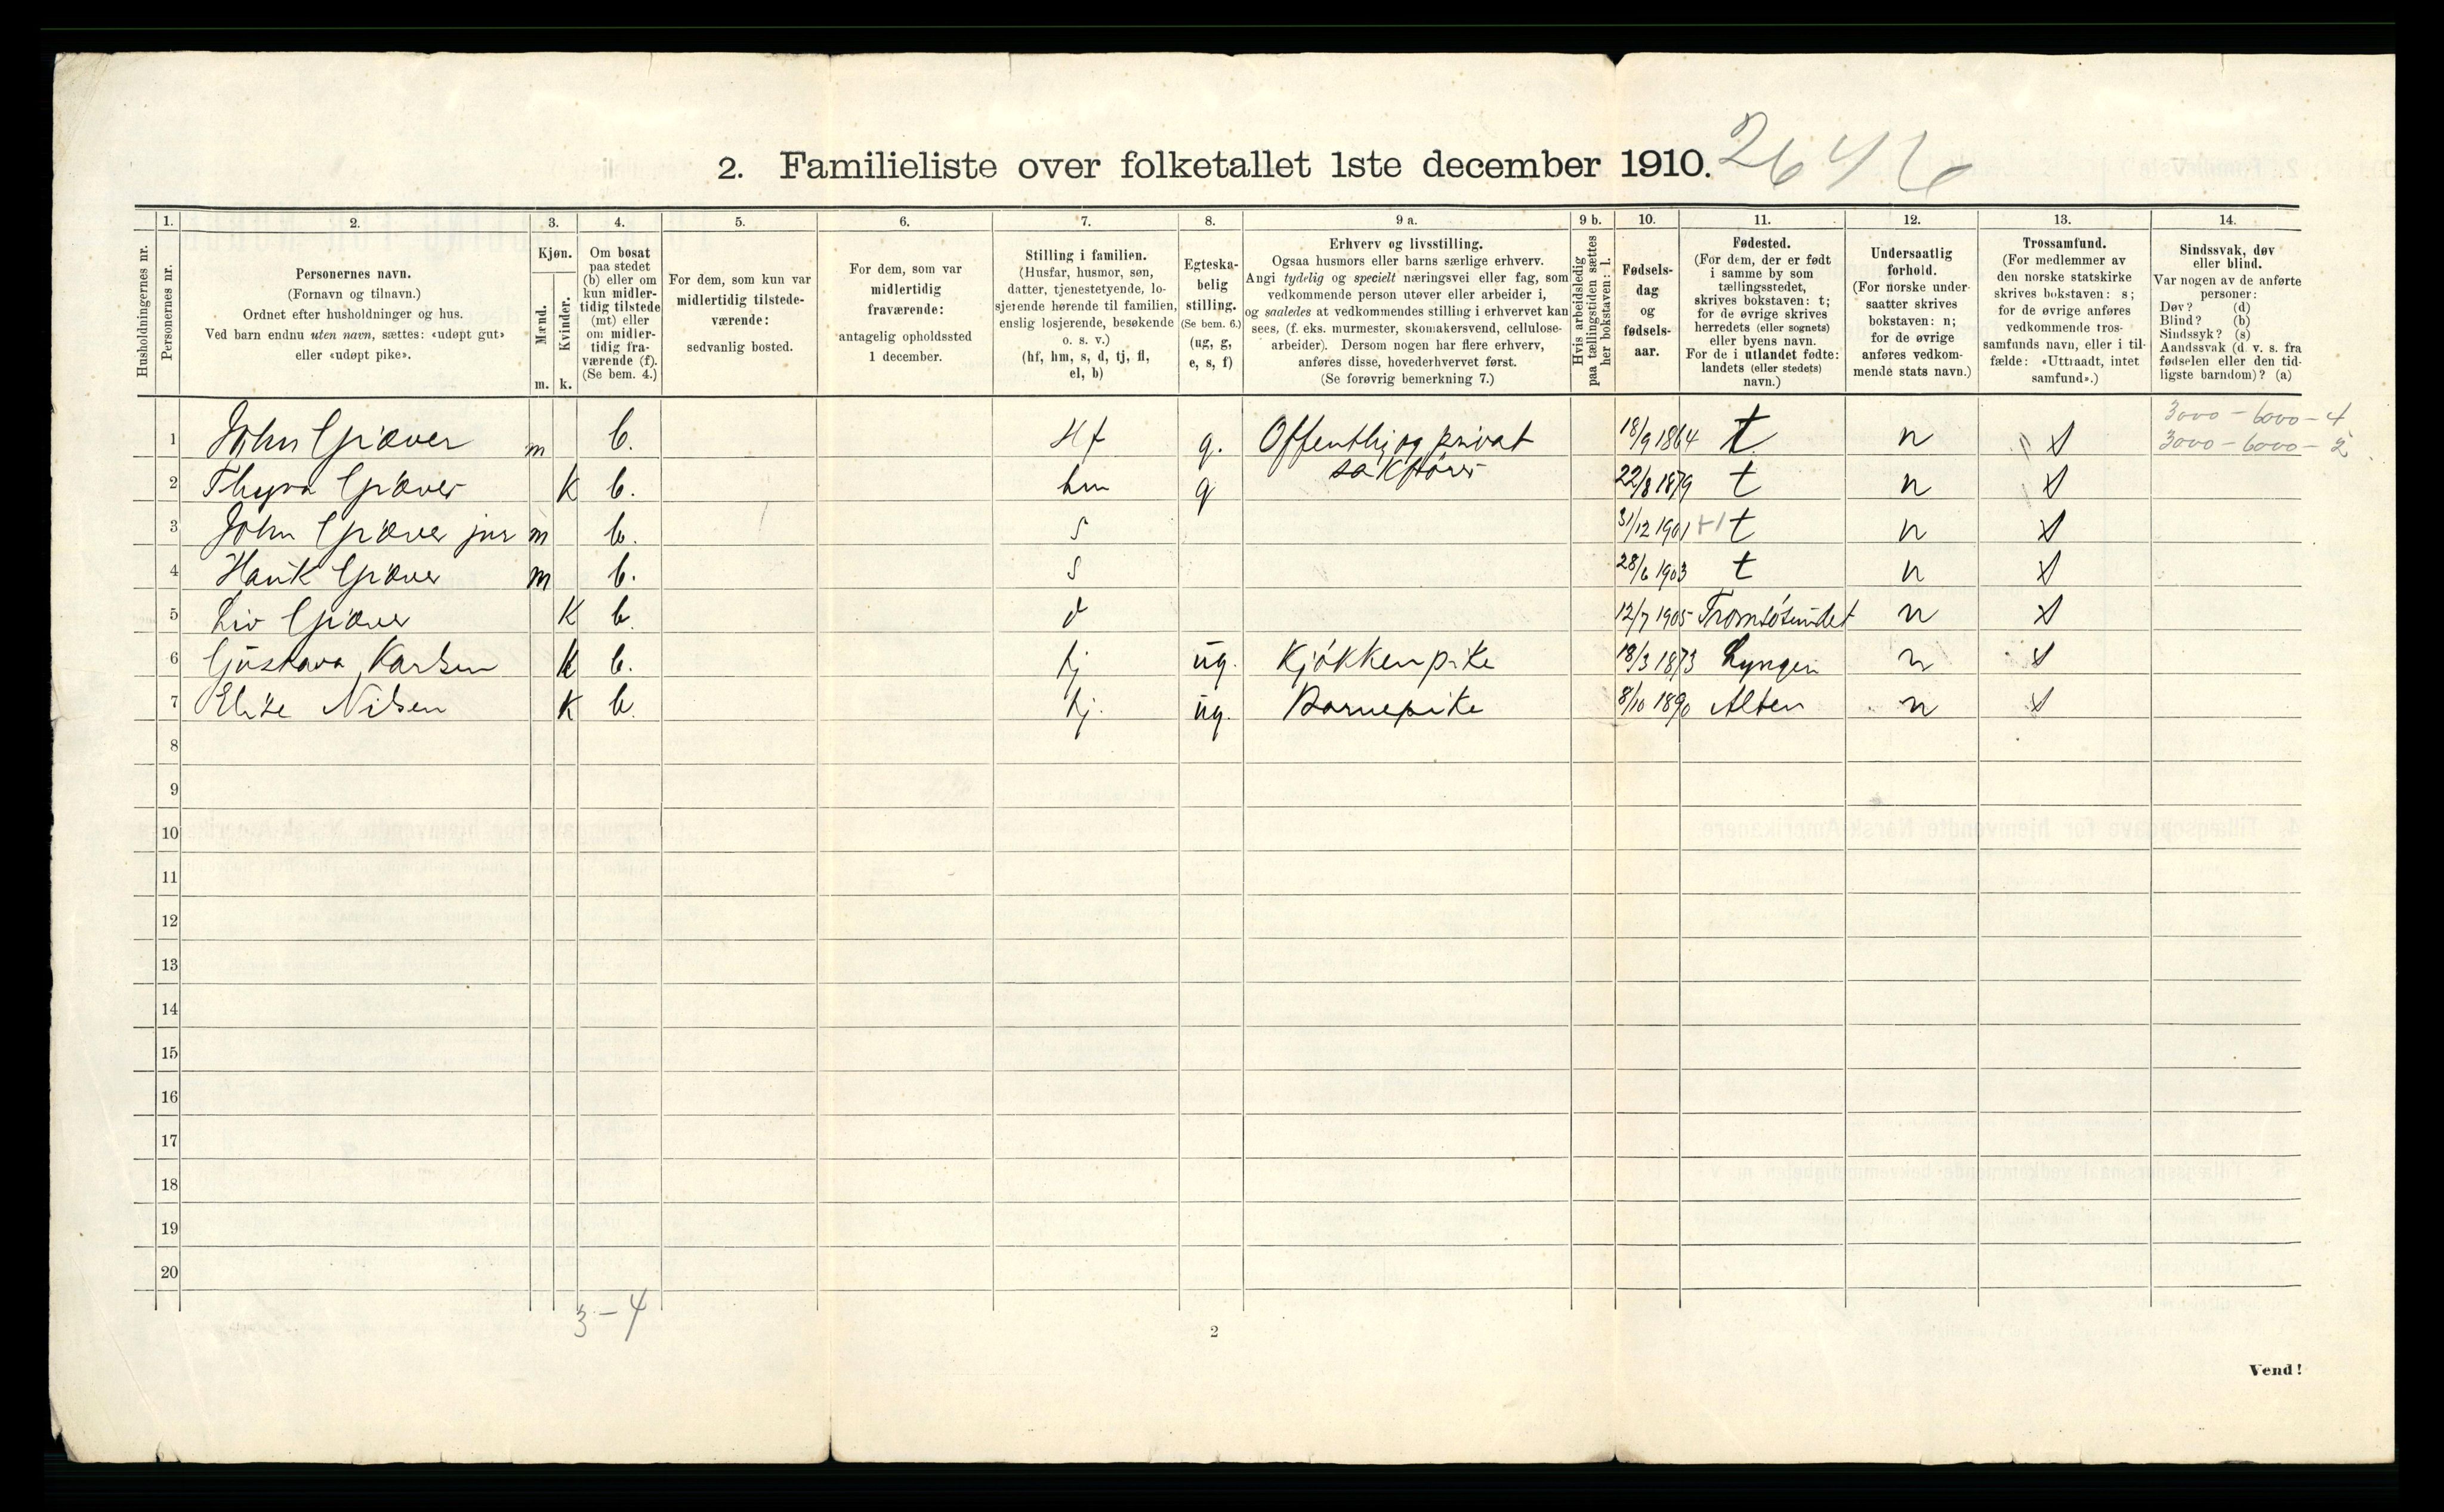 2. Familieliste over folketallet 1ste december 1910.
Husholdningernes nr.
1. Personernes nr.
2. Personernes navn.
(Fornavn og tilnavn.)
Ordnet efter husholdninger og hus.
Ved barn endnu uten navn, sættes: «udøpt gut»
eller «udøpt pike».
3. Kjøn.
Mænd. m.
Kvinder. k.
4. Om bosat
paa stedet
(b) eller om
kun midler-
tidig tilstede
(mt) eller
om midler-
tidig fra-
værende (f).
(Se bem. 4.)
5. For dem, som kun var
midlertidig tilstede-
værende:
sedvanlig bosted.
6. For dem, som var
midlertidig
fraværende:
antagelig opholdssted
1 december.
7. Stilling i familien.
(Husfar, husmor, søn,
datter, tjenestetyende, lo-
sjerende hørende til familien,
enslig losjerende, besøkende
o. s. v.)
(hf, hm, s, d, tj, fl,
el, b)
8. Egteska-
belig
stilling.
(Se bem. 6.)
(ug, g,
e, s, f)
9 a. Erhverv og livsstilling.
Ogsaa husmors eller barns særlige erhverv.
Angi tydelig og specielt næringsvei eller fag, som
vedkommende person utøver eller arbeider i,
og saaledes at vedkommendes stilling i erhvervet kan
sees, (f. eks. murmester, skomakersvend, cellulose-
arbeider). Dersom nogen har flere erhverv,
anføres disse, hovederhvervet først.
(Se forøvrig bemerkning 7.)
9 b. Hvis arbeidsledig
paa tællingstiden sættes
her bokstaven: l.
10. Fødsels-
dag
og
fødsels-
aar.
11. Fødested.
(For dem, der er født
i samme by som
tællingsstedet,
skrives bokstaven: t;
for de øvrige skrives
herredets (eller sognets)
eller byens navn.
For de i utlandet fødte:
landets (eller stedets)
navn.)
12. Undersaatlig
forhold.
(For norske under-
saatter skrives
bokstaven: n;
for de øvrige
anføres vedkom-
mende stats navn.)
13. Trossamfund.
(For medlemmer av
den norske statskirke
skrives bokstaven: s;
for de øvrige anføres
vedkommende tros-
samfunds navn, eller i til-
fælde: «Uttraadt, intet
samfund».)
14. Sindssvak, døv
eller blind.
Var nogen av de anførte
personer:
Døv? (d)
Blind? (b)
Sindssyk? (s)
Aandssvak (d. v. s. fra
fødselen eller den tid-
ligste barndom)? (a)
3000 - 6000 - 4
3000 - 6000 - 2
1 John Giæver m b. Hf g. Offentlig og privat sakfører 18/9 1864 t n s
2 Thyra Giæver K b. hm g 22/8 1879 t n s
3 John Giæver jnr m b. s 31/12 1901 t n s
4 Hauk Giæver m b. s 28/6 1903 t n s
5 Liv Giæver K b. d 12/7 1905 Tromsøsundet n s
6 Gustava Karlsen K b. tj ug. Kjøkkenpike 18/3 1873 Lyngen n s
7 Elise Nilsen K b. tj. ug. Barnepike 8/10 1890 Alten n s
8
9
10
11
12
13
14
15
16
17
18
19
20
3 - 4
2
Vend!